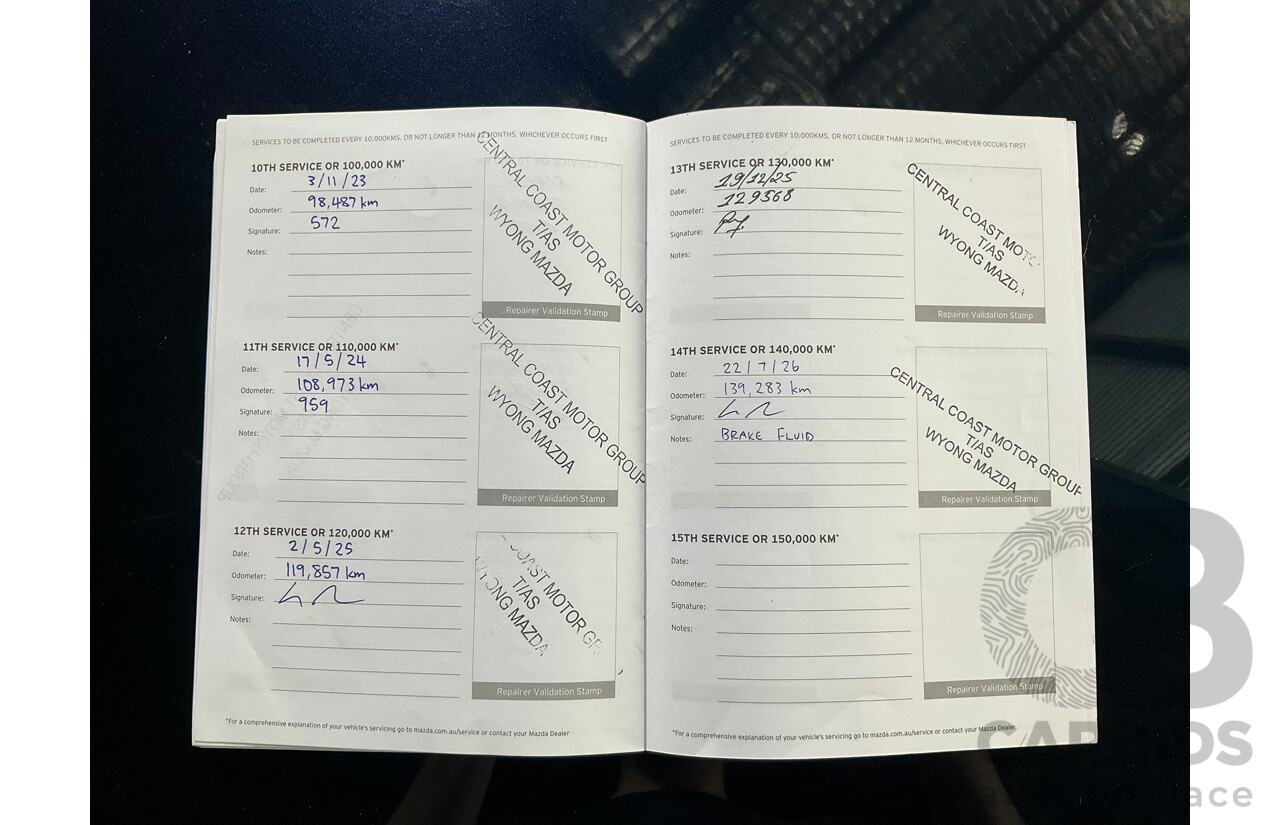 SERVICES TO BE COMPLETED EVERY 10,000KMS, OR NOT LONGER THAN 12 MONTHS, WHICHEVER OCCURS FIRST
10TH SERVICE OR 100,000 KM*
Date: 3/11/23
Odometer: 98,487 km
Signature: 572
Notes:
CENTRAL COAST MOTOR GROUP
T/AS
WYONG MAZDA
Repairer Validation Stamp
11TH SERVICE OR 110,000 KM*
Date: 17/5/24
Odometer: 108,973 km
Signature: 959
Notes:
CENTRAL COAST MOTOR GROUP
T/AS
WYONG MAZDA
Repairer Validation Stamp
12TH SERVICE OR 120,000 KM*
Date: 2/5/25
Odometer: 119,857 km
Signature:
Notes:
COAST MOTOR GR
T/AS
WYONG MAZDA
Repairer Validation Stamp
*For a comprehensive explanation of your vehicle's servicing go to mazda.com.au/service or contact your Mazda Dealer
SERVICES TO BE COMPLETED EVERY 10,000KMS, OR NOT LONGER THAN 12 MONTHS, WHICHEVER OCCURS FIRST
13TH SERVICE OR 130,000 KM*
Date: 19/12/25
Odometer: 129568
Signature:
Notes:
CENTRAL COAST MOTO
T/AS
WYONG MAZDA
Repairer Validation Stamp
14TH SERVICE OR 140,000 KM*
Date: 22/7/26
Odometer: 139,283 km
Signature:
Notes: BRAKE FLUID
CENTRAL COAST MOTOR GROUP
T/AS
WYONG MAZDA
Repairer Validation Stamp
15TH SERVICE OR 150,000 KM*
Date:
Odometer:
Signature:
Notes:
Repairer Validation Stamp
*For a comprehensive explanation of your vehicle's servicing go to mazda.com.au/service or contact your Mazda Dealer